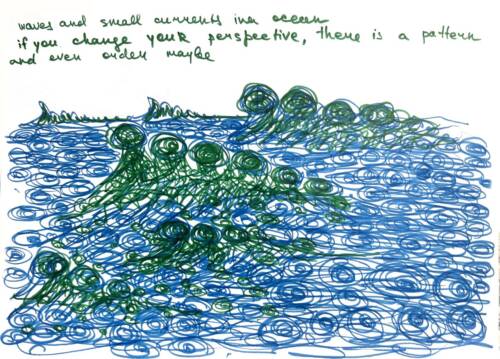 waves and small currents in a ocean
if you change your perspective, there is a pattern
and even order maybe